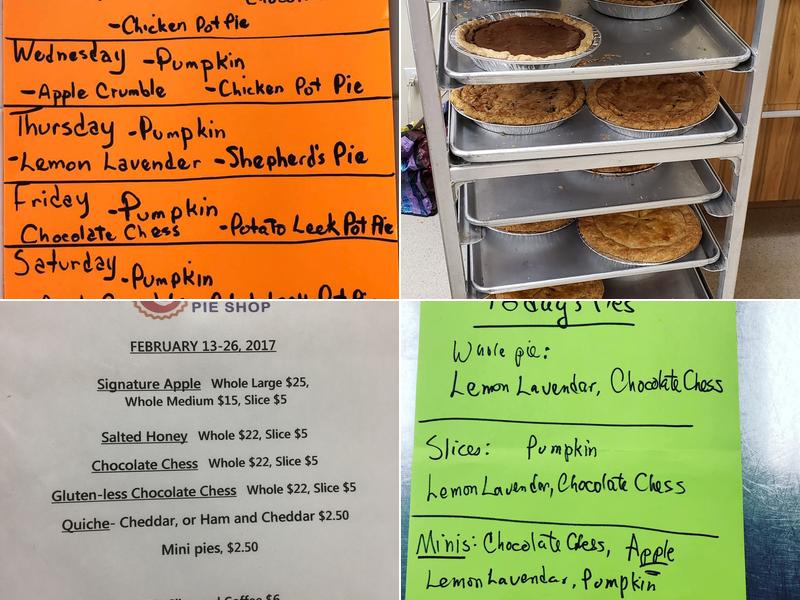 -Chicken Pot Pie
Wednesday -Pumpkin
-Apple Crumble -Chicken Pot Pie
Thursday -Pumpkin
-Lemon Lavender -Shepherd's Pie
Friday -Pumpkin
Chocolate Chess -Potato Leek Pot Pie
Saturday -Pumpkin
PIE SHOP
FEBRUARY 13-26, 2017
Signature Apple Whole Large $25,
Whole Medium $15, Slice $5
Salted Honey Whole $22, Slice $5
Chocolate Chess Whole $22, Slice $5
Gluten-less Chocolate Chess Whole $22, Slice $5
Quiche- Cheddar, or Ham and Cheddar $2.50
Mini pies, $2.50
Today's Pies
Whole pie:
Lemon Lavendar, Chocolate Chess
Slices: Pumpkin
Lemon Lavendar, Chocolate Chess
Minis: Chocolate Chess, Apple
Lemon Lavendar, Pumpkin